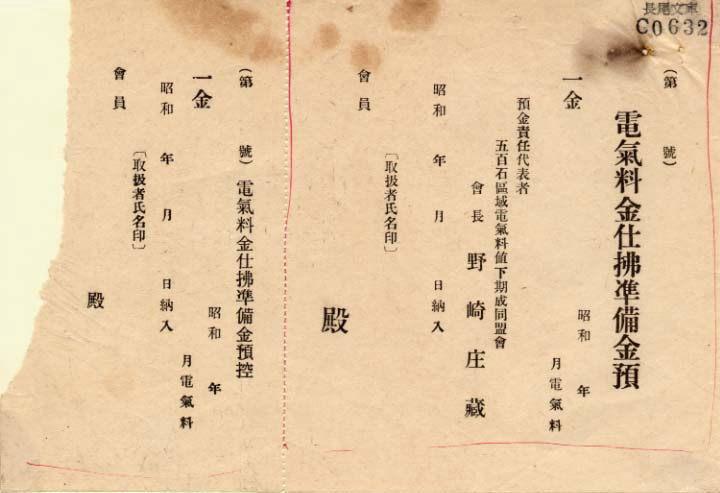 長尾文庫
C0632
(第　　號)
電氣料金仕拂準備金預
一金
昭和　年　月電氣料
預金責任代表者
五百石區域電氣料値下期成同盟會
會長　野崎庄藏
昭和　年　月　日納入
〔取扱者氏名印〕
會員　　殿
(第　　號)　電氣料金仕拂準備金預控
昭和　年　月電氣料
一金
昭和　年　月　日納入
〔取扱者氏名印〕
會員　　殿